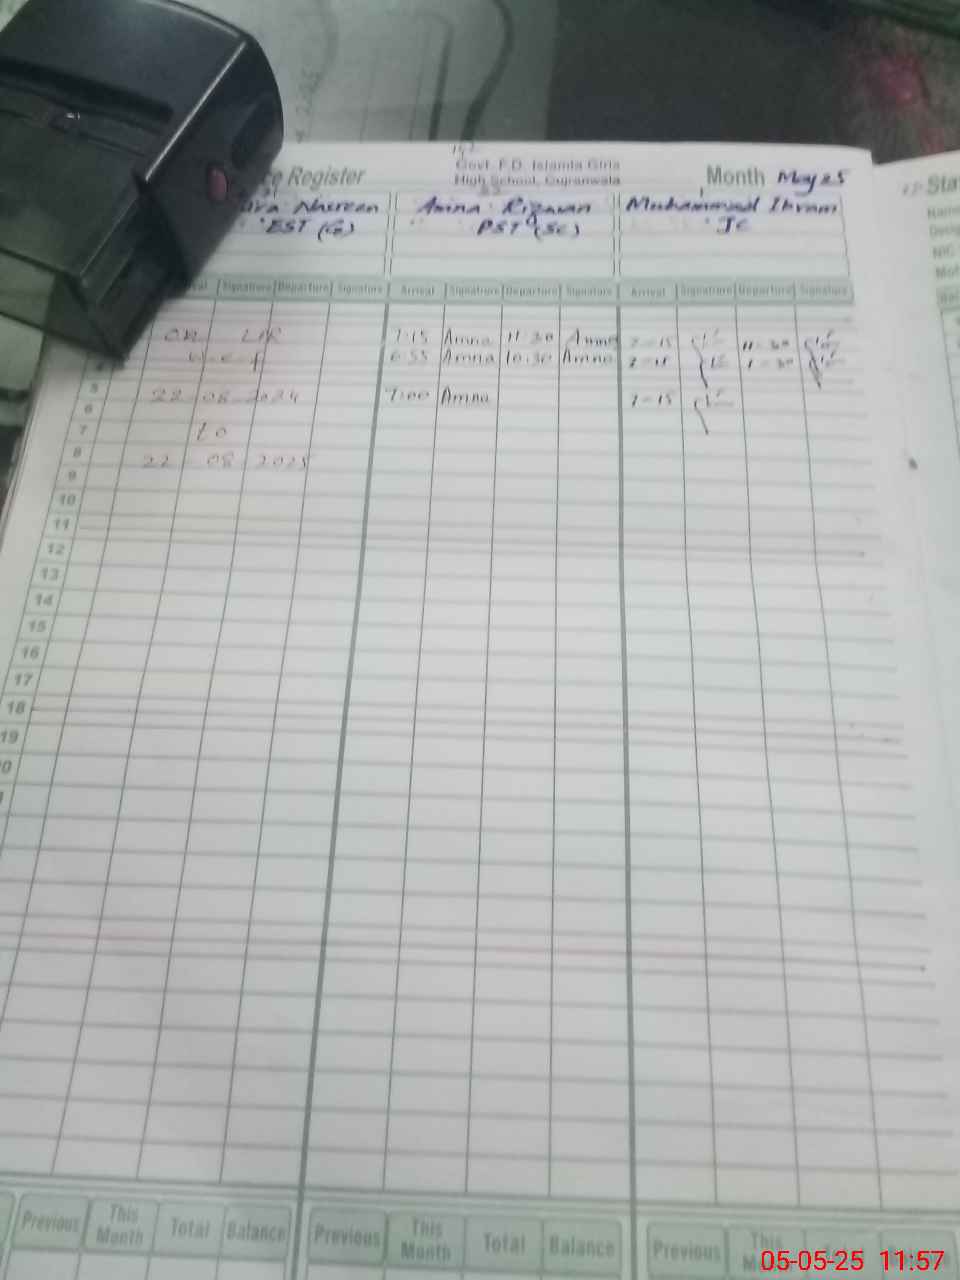 Govt. F.D. Islamia Girls
High School, Gujranwala
e Register
Month May 25
ra Nasreen
EST (G)
Amna Rizwan
PST (SC)
Muhammad Ikram
JC
Signature Departure Signature Arrival Signature Departure Signature Arrival Signature Departure Signature
on LHR 7:15 Amna 11:30 Amna 7-15 11-30
w.e.f 6:55 Amna 10:30 Amna 7-15 1-30
5 22 08 2024 7:00 Amna 7-15
6
7 to
8 22 08 2025
9
10
11
12
13
14
15
16
17
18
19
Previous This Month Total Balance Previous This Month Total Balance Previous This
05-05-25 11:57
Sta